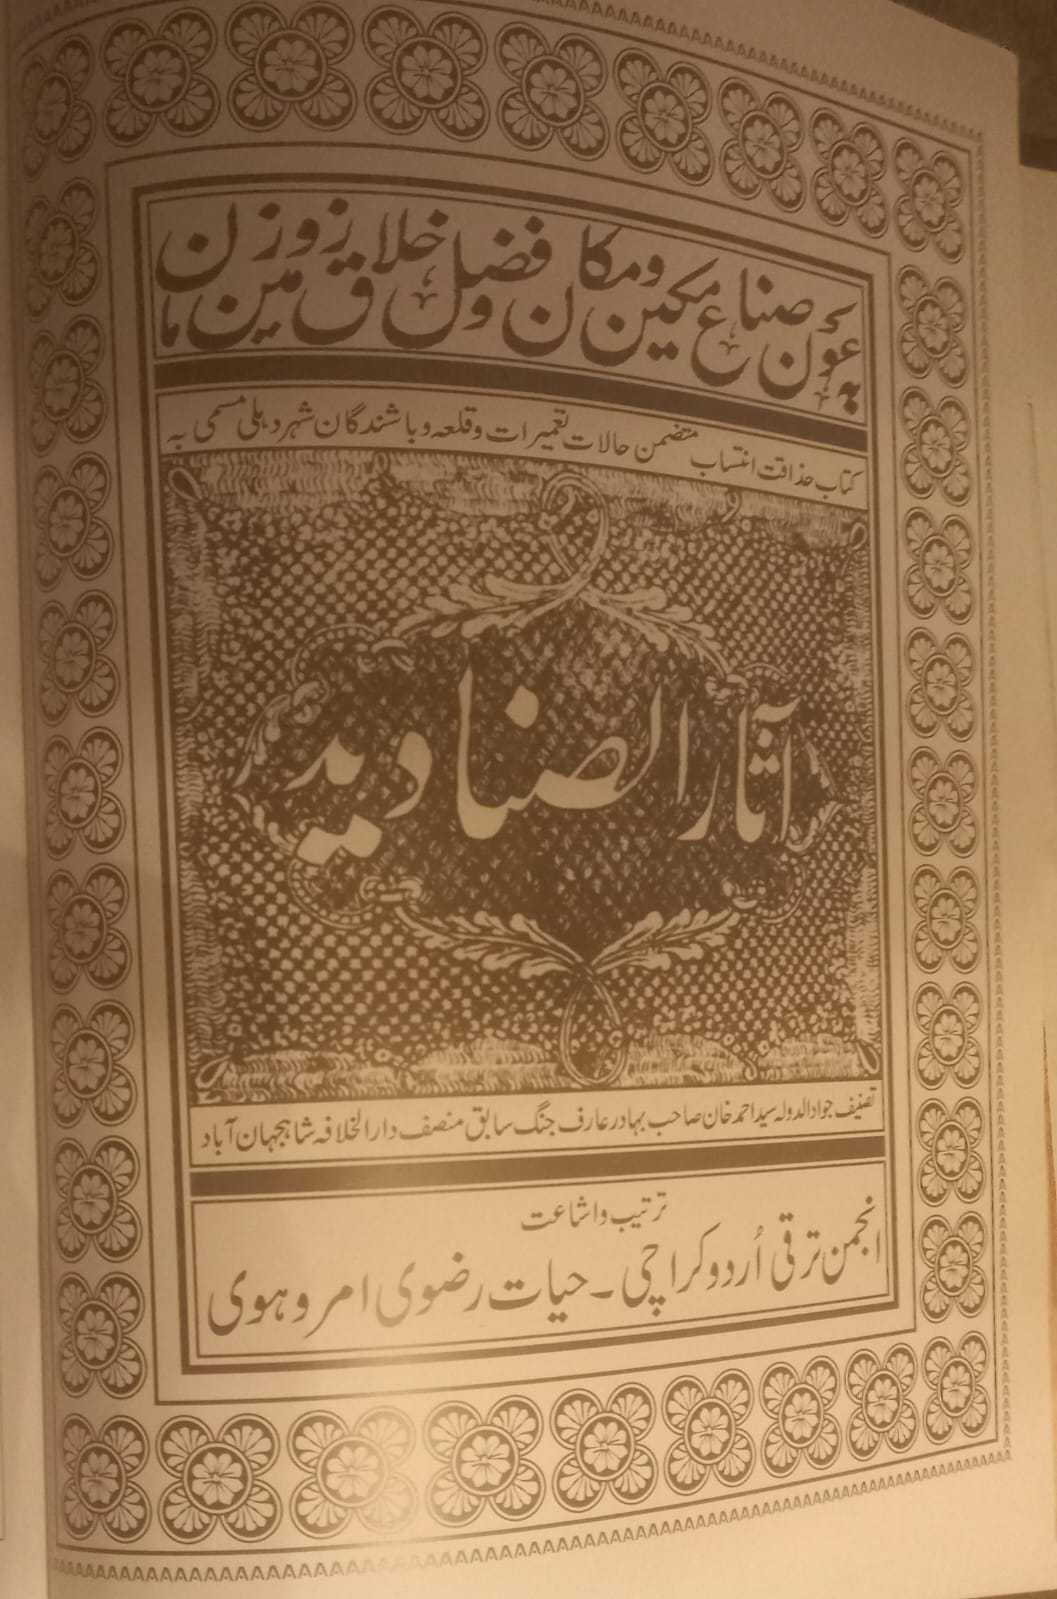 بہ عون صناع مکین و مکان و فضل خلایق زمین و زمان
کتاب حذاقت انتساب متضمن حالات تعمیرات و قلعہ و باشندگان شہر دہلی مسمی بہ
آثار الصنادید
تصنیف جواد الدولہ سید احمد خان صاحب بہادر عارف جنگ سابق منصف دار الخلافہ شاہجہان آباد
ترتیب و اشاعت
انجمن ترقی اُردو کراچی ۔ حیات رضوی امروہوی